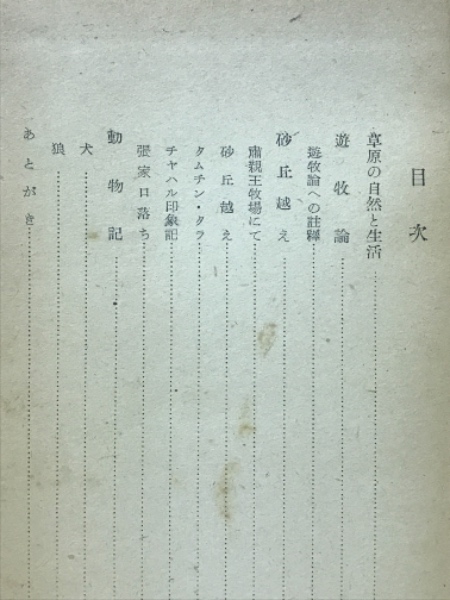 目次
草原の自然と生活
遊牧論
遊牧論への註釋
砂丘越え
肅親王牧場にて
砂丘越え
タムチン・タラ
チャハル印象記
張家口落ち
動物記
犬
狼
あとがき